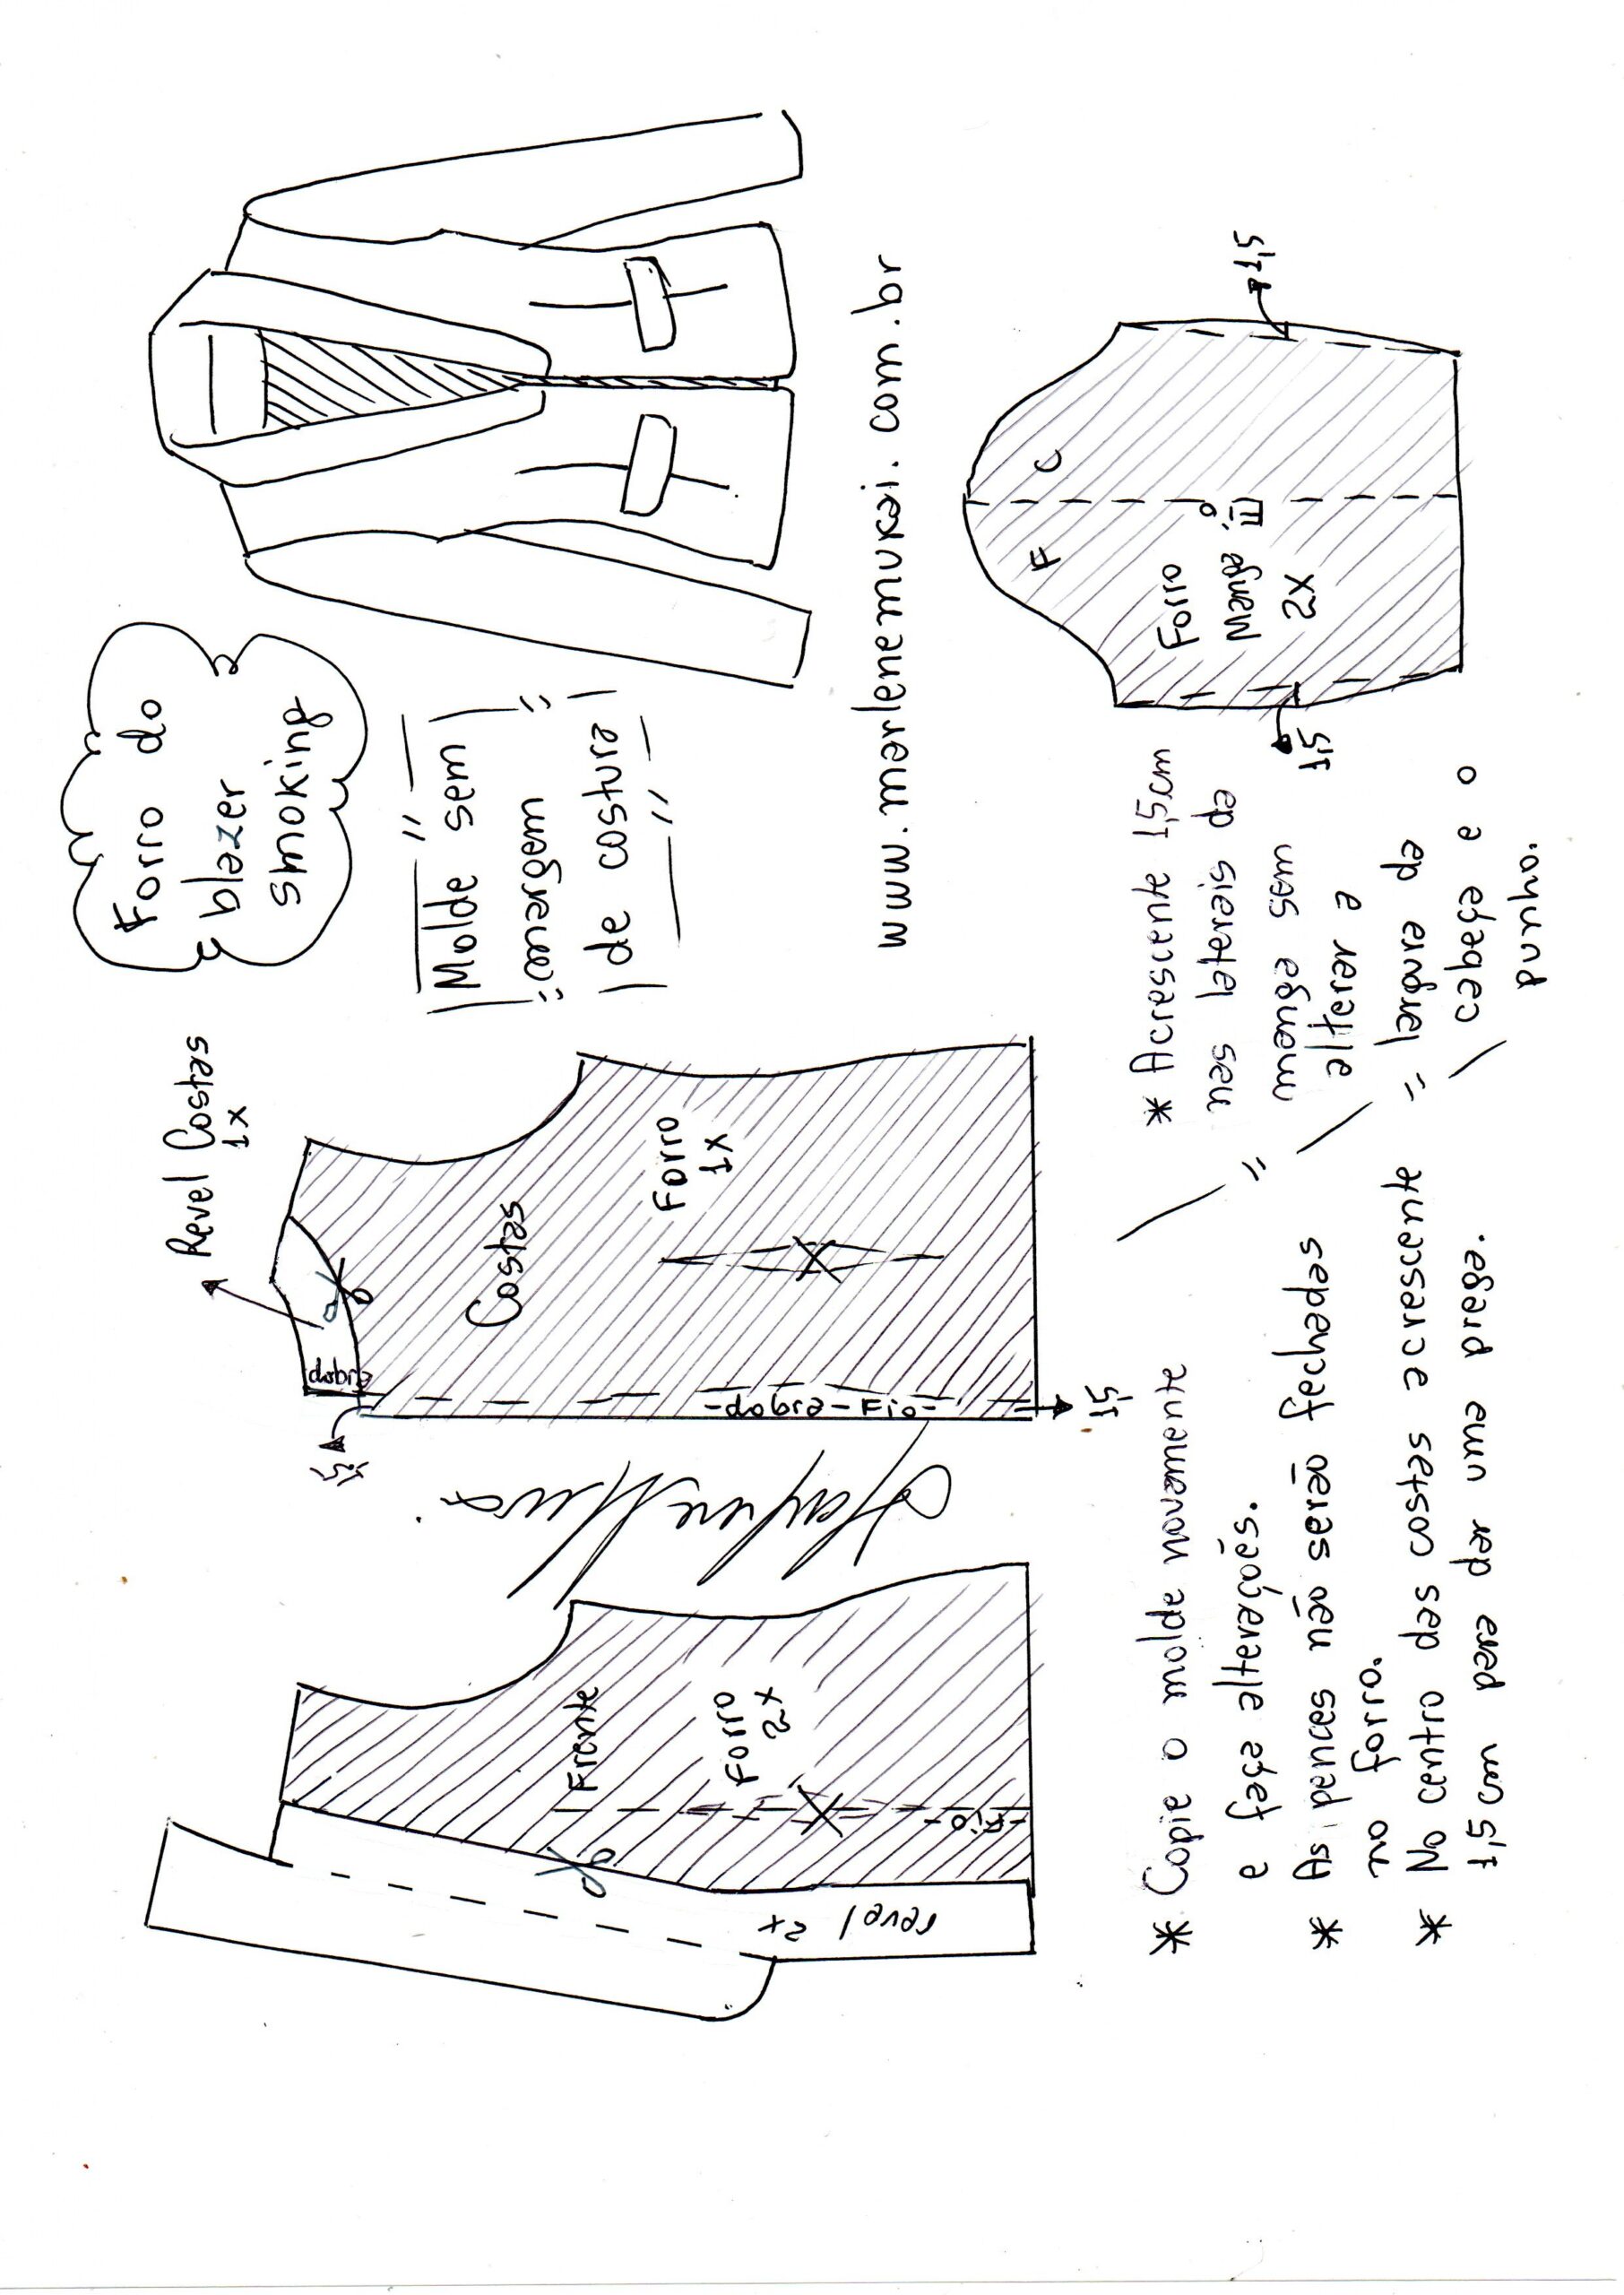 Forro do
blazer
smoking
"Molde sem
margem
de costura"
www.marlenemukai.com.br
Revel Costas
1x
dobra
1,5
Costas
Forro
1x
-dobra-Fio-
1,5
Frente
Forro
2x
-Fio-
revel 2x
F C
Forro
Manga
2x
Fio
1,5
1,5
* Copie o molde novamente
e faça alterações.
* As pences não serão fechadas
no forro.
* No centro das costas acrescente
1,5 cm para dar uma prega.
* Acrescente 1,5cm
nas laterais da
manga sem
alterar a
largura da
cabeça e o
punho.